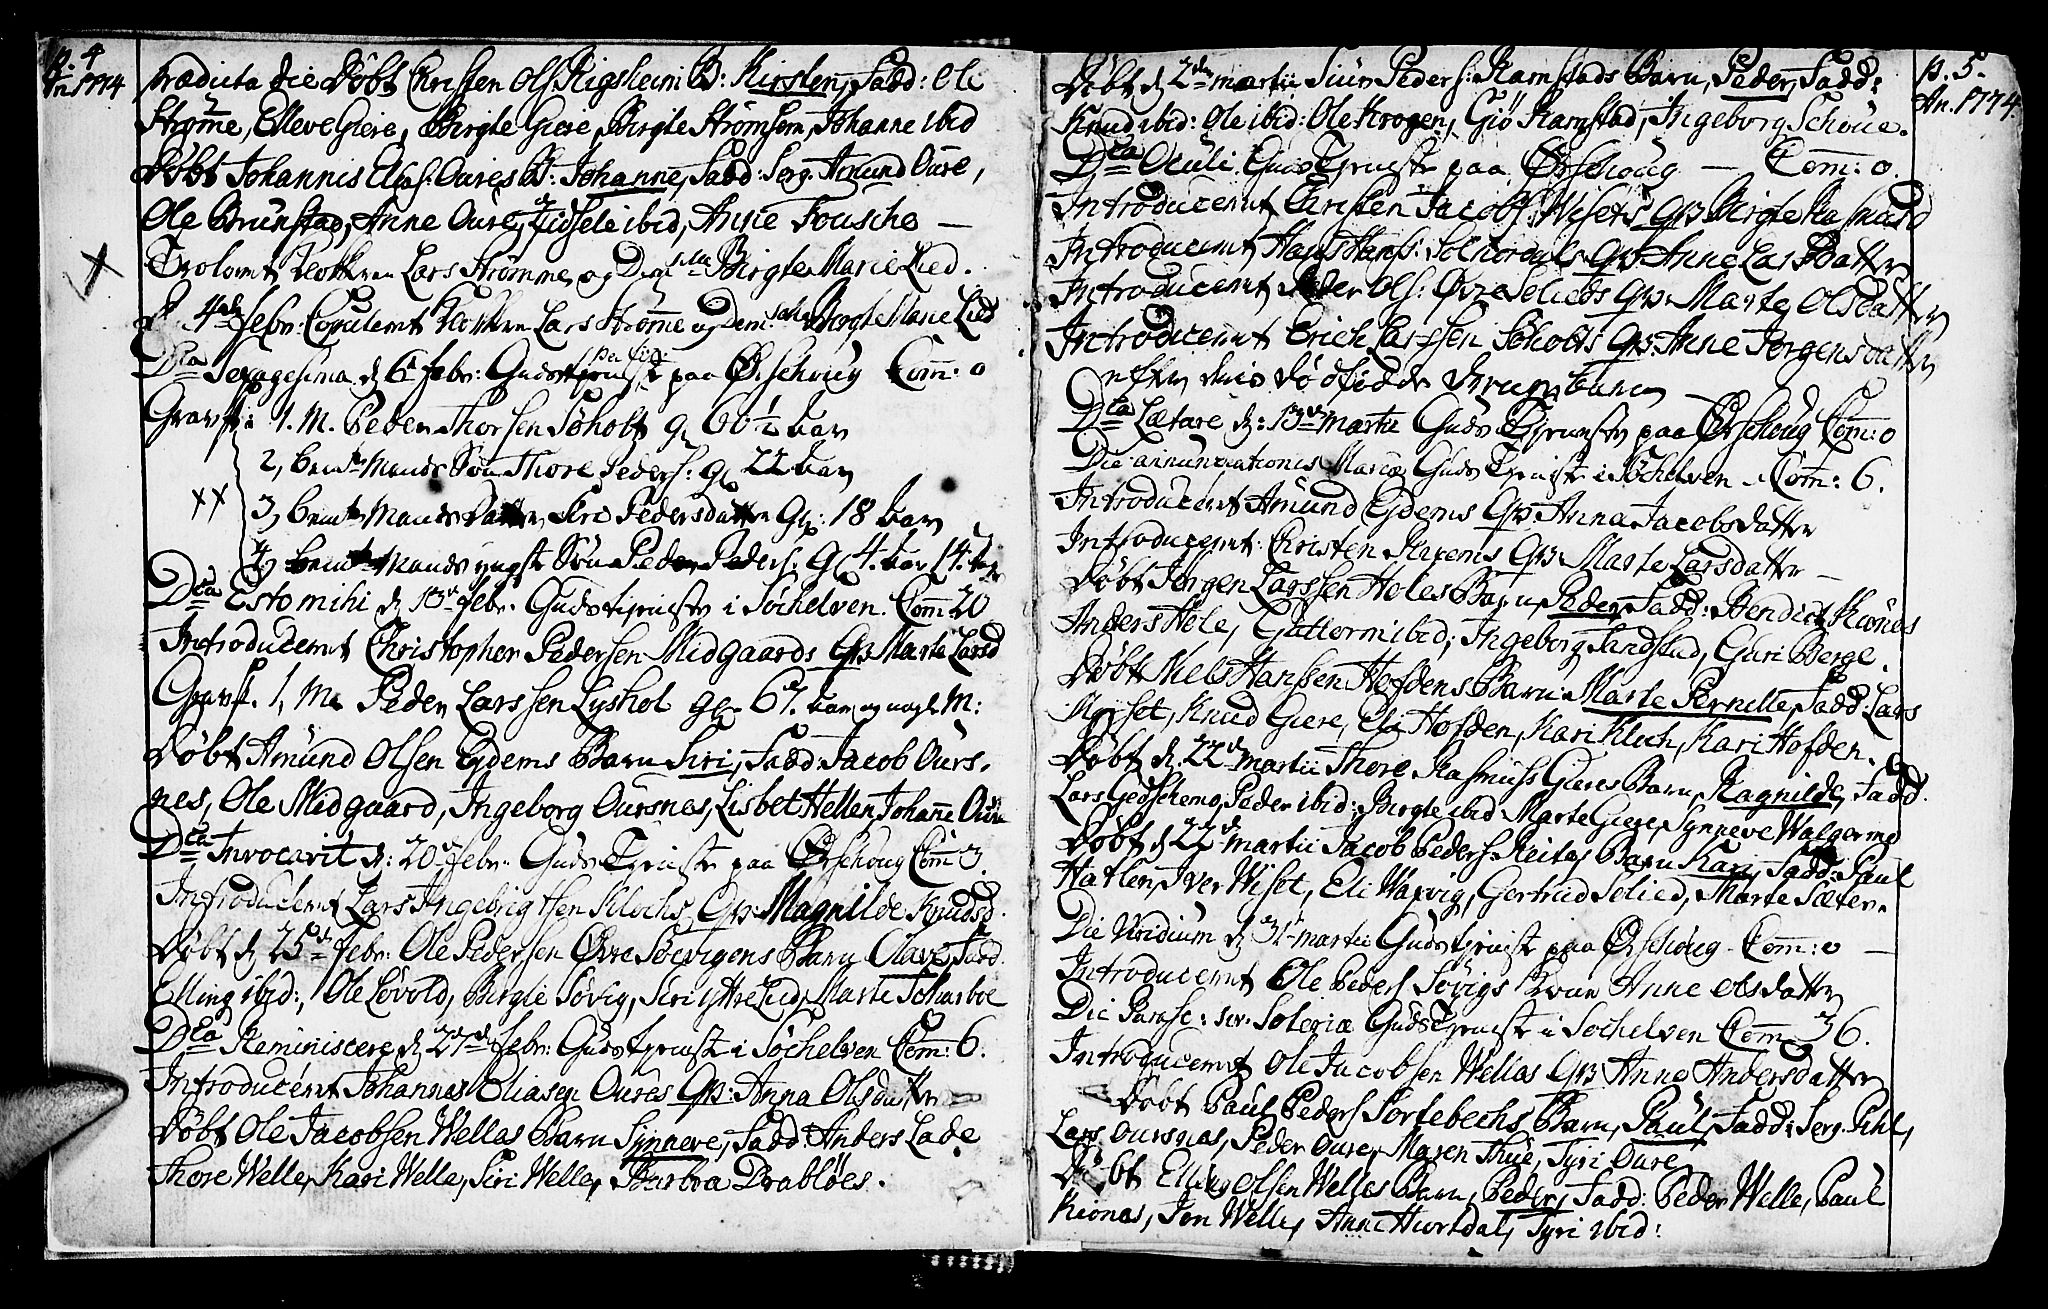 p. 4
An 1774
prædicta die Döbt Christen Ols. Rigsheim B: Kirsten, Fadd: Ole
Strømme, Elleve Giere, Birgte Giere, Birgte Strømsem, Johanne ibid
Döbt Johannis Elias: Oures B: Johanne, Fadd: Serg. Amund Oure,
Ole Brunstad, Anne Oure, Zidsele ibid, Anne Fousche —
Trolovet Klokkeren Lars Strømme og Dem:selle Birgte Marie Lied.
d 4de febr: Copuleret Klokkeren Lars Strømme og Dem:selle Birgte Marie Lied
Dca Sexagesima d 6te febr: Gudstieniste paa Ørschoug Com: 0
Gravfæ: 1. M. Peder Thorsen Søholt gl 60 ½ aar
2, bemte Mands Søn Thore Peders: gl 22 aar
3, bemte Mands Datter Siri Pedersdatter gl: 18 aar
4, bemte Mands yngste Søn Peder Peders: gl 4. aar 14.
Dca Estomihi d 13de febr. Gudstieniste i Söchelven. Com: 20
Introduceret Christopher Pedersen Midgaards Qv: Marte Larsd
Gravf. 1, M. Peder Larssen Lyshol gl. 67. aar og nogle M:
Döbt Amünd Olsen Eydems Barn Siri, Fadd: Jacob Ours-
nes, Ole Midgaard, Ingeborg Oursnes, Lisbet Hellen, Johanne Oure
Dca Invocavit d: 20de febr: Guds Tieniste paa Ørschoug Com 3.
Introduceret Lars Ingebrigtsen Klochs Qv: Magnilde Knudsd.
Döbt d 25de febr: Ole Pedersen Øvre Søevigens Barn Olave, Fadd.
Elling ibid:, Ole Lövold, Birgte Søvig, Siri Ytrelied, Marte Scharboe
Dca Reminiscere d 27de febr: Gudstieniste i Söchelven Com: 6.
Introduceret Johannes Eliasen Oures Qv: Anna Olsdatter
Döbt Ole Jacobsen Welles Barn Synneve, Fadd: Anders Lade
Thore Welle, Kari Welle, Siri Welle, Barbra Drabløes.
p. 5.
An. 1774.
Döbt d 2den martii Siur Peders: Ramstads Barn, Peder, Fadd:
Knud ibid: Ole ibid: Ole Krogen, Giø Ramstad, Ingeborg Schoue.
Dca Oculi Guds Tieniste paa Ørschoug — Com: 0.
Introduceret Christen Jacobs: Wisets Qv Birgte Rasmusd
Introduceret Hans Hans: Solnordals Qv. Anne Lars Datter
Introduceret Peder Ols: Øvre Selieds Qv. Marte Olsdatter
Introduceret Erich Larssen Søholts Qv: Anne Jørgensdatter
efter deris dødfødde Drengbarn
Dca Lætare d: 13de martii Guds Tieniste paa Ørschoug Com: 0
Die annunciationis Mariæ Guds Tieniste i Söchelven Com: 6.
Introduceret Amund Eydems Qv Anna Jacobsdatter
Introduceret Christen Rexems Qv: Marte Larsdatter —
Döbt Jørgen Larssen Holes Barn, Peder, Fadd: Bendict Riønes
Anders Hole, Guttorm ibid; Ingeborg Sandstad, Guri Berge.
Döbt Niels Hanssen Hofdens Barn Marte Pernille, Fadd: Lars
Wiset, Knud Giere, Eli Hofden, Kari Kloch, Kari Hofden.
Döbt d. 22de martii Thore Rasmuss: Gieres Barn, Ragnilde, Fadd.
Lars Gedschemo, Peder ibid: Birgte ibid Marte Giere, Synneve Walgermo
Döbt d 22de martii Jacob Peders: Reites Barn Kari, Fadd: Paul
Hatlen, Iver Wiset, Eli Waxvig, Gertrud Selied, Marte Sæter.
Die Viridium d 31te martii Gudstieniste paa Ørschoug Com: 0 —
Introduceret Ole Peders Søvigs Qvinde Anne Olsdatter
Die Parasc: ser. Soleriæ Guds Tieniste i Sochelven Com: 36.
Introduceret Ole Jacobsen Welles Qv. Anne Andersdatter
Döbt Paul Peders Sortebechs Barn, Paul, Fadd: Serg. Pihl,
Lars Oursnes, Peder Oure, Maren Thue, Tyri Oure,
Döbt Elling Olsen Welles Barn, Peder, Fadd: Peder Welle, Paul
Riønes, Jon Welle, Anne Hiortdal, Tyri ibid: